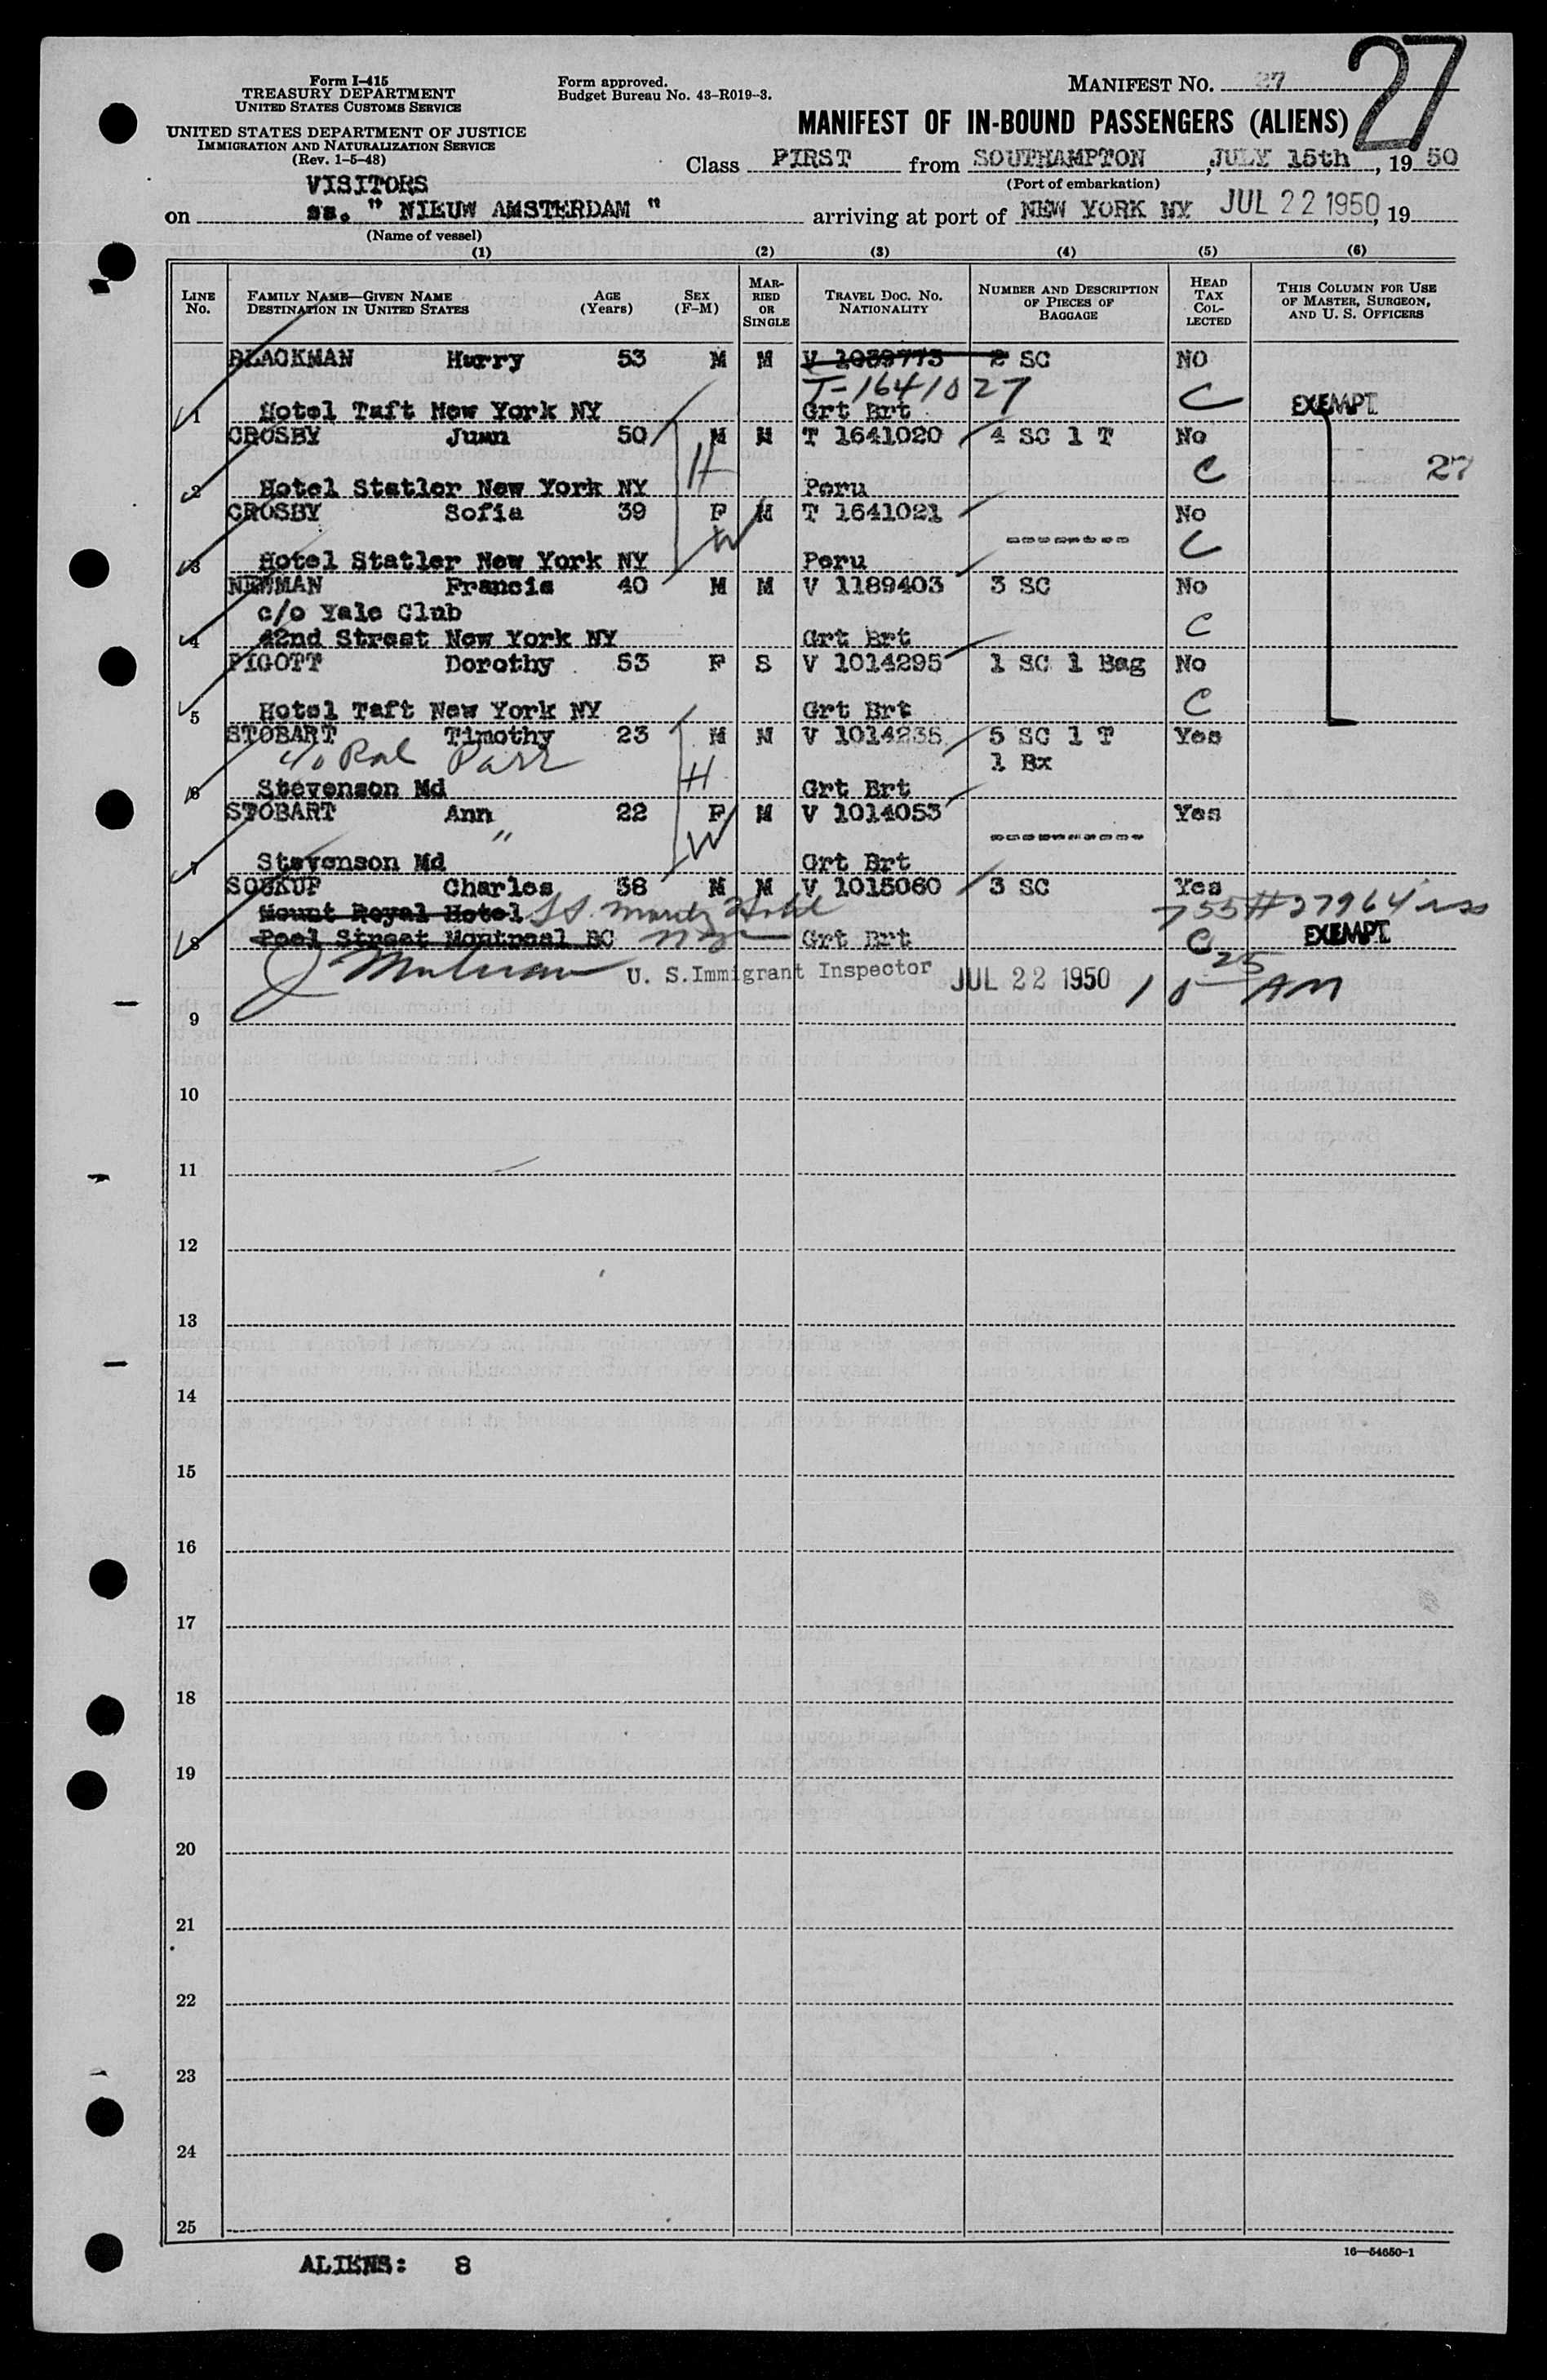 27
Form I-415
TREASURY DEPARTMENT
UNITED STATES CUSTOMS SERVICE
Form approved.
Budget Bureau No. 43-R019-3.
MANIFEST NO. 27
UNITED STATES DEPARTMENT OF JUSTICE
IMMIGRATION AND NATURALIZATION SERVICE
(Rev. 1-5-48)
MANIFEST OF IN-BOUND PASSENGERS (ALIENS)
Class FIRST from SOUTHAMPTON, JULY 15th, 1950
(Port of embarkation)
VISITORS
on ss. " NIEUW AMSTERDAM " arriving at port of NEW YORK NY JUL 22 1950, 19
(Name of vessel)
(1) (2) (3) (4) (5) (6)
LINE No. FAMILY NAME—GIVEN NAME DESTINATION IN UNITED STATES AGE (Years) SEX (F-M) MARRIED OR SINGLE TRAVEL DOC. NO. NATIONALITY NUMBER AND DESCRIPTION OF PIECES OF BAGGAGE HEAD TAX COLLECTED THIS COLUMN FOR USE OF MASTER, SURGEON, AND U. S. OFFICERS
BLACKMAN Harry 53 M M V 1039773 2 SC NO
T-1641027
1 Hotel Taft New York NY Grt Brt C EXEMPT
CROSBY Juan 50 M M T 1641020 4 SC 1 T No
H C 27
2 Hotel Statler New York NY Peru
CROSBY Sofia 39 F M T 1641021 No
W -------- C
3 Hotel Statler New York NY Peru
NEWMAN Francis 40 M M V 1189403 3 SC No
c/o Yale Club
4 42nd Street New York NY Grt Brt C
PIGOTT Dorothy 53 F S V 1014295 1 SC 1 Bag No
5 Hotel Taft New York NY Grt Brt C
STOBART Timothy 23 M M V 1014235 5 SC 1 T Yes
c/o Ral Parr 1 Bx
H
6 Stevenson Md Grt Brt
STOBART Ann 22 F M V 1014053 Yes
" W ----------
7 Stevenson Md Grt Brt
SOUKUP Charles 38 M M V 1015060 3 SC Yes
Mount Royal Hotel St. Moritz Hotel 755#27964
8 Peel Street Montreal BC NYC Grt Brt C EXEMPT
U. S. Immigrant Inspector JUL 22 1950 10 25 AM
9
10
11
12
13
14
15
16
17
18
19
20
21
22
23
24
25
16—54650-1
ALIENS: 8